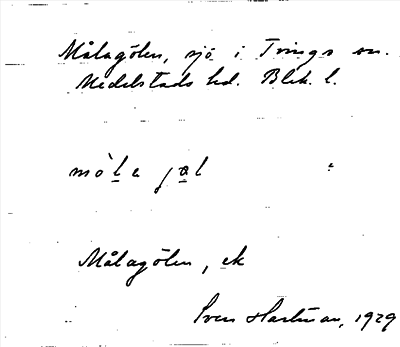 Målagölen, sjö i Tvings sn.
Medelstads hd. Blek. l.
Målagölen, ek
Sven Hartman, 1929